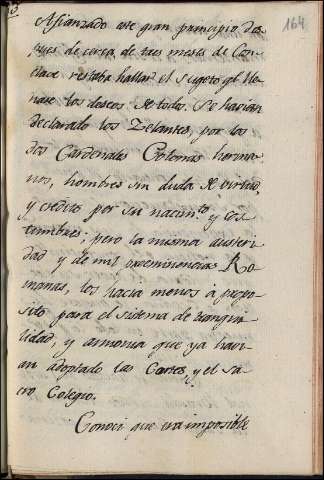 164
Afianzado este gran principio des-
pues de cerca de tres meses de Con-
clave restaba hallar el sugeto q.e lle-
nase los deseos de todos. Se havian
declarado los Zelantes, por los
dos Cardenales Colonnas herma-
nos, hombres sin duda de virtud,
y credito por su nacim.to y cos-
tumbres; pero la misma austeri-
dad y de mil preeminencias Ro-
manas, los hacia menos à propo-
sito para el sistema de tranqui-
lidad, y armonia que ya havi-
an adoptado las Cortes, y el Sa-
cro Colegio.
Conocí que era imposible